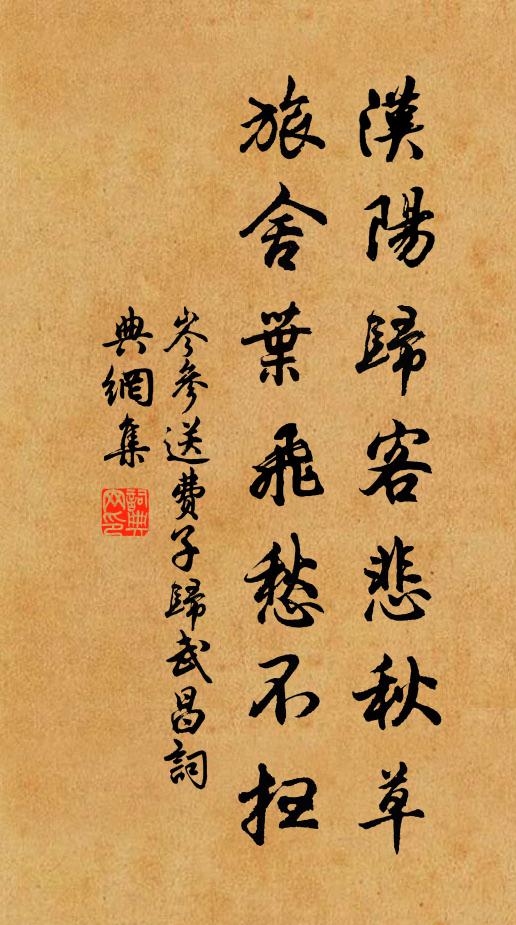 漢陽歸客悲秋草
旅舍葉飛愁不扫
岑參送費子歸武昌詞
典網集
詞典
网印